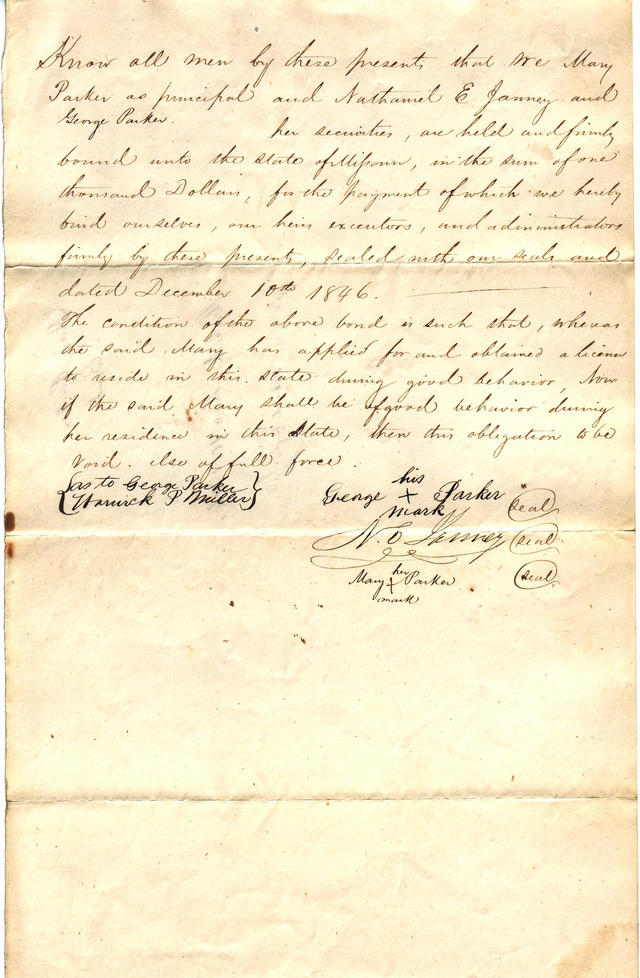 Know all men by these presents that we Mary
Parker as principal and Nathaniel E Janney and
George Parker. her securities, are held and firmly
bound unto the state of Missouri, in the sum of one
thousand Dollars, for the payment of which we hereby
bind ourselves, our heirs executors, and administrators
firmly by these presents, sealed with our seals and
dated December 10th 1846.
The condition of the above bond is such that, whereas
the said Mary has applied for and obtained a license
to reside in this state during good behavior, Now
if the said Mary shall be of good behavior during
her residence in this State, then this obligation to be
void. else of full force.
as to George Parker
Warwick P Miller
his
George X Parker
mark
seal
N. E Janney
seal
her
Mary X Parker
mark
seal